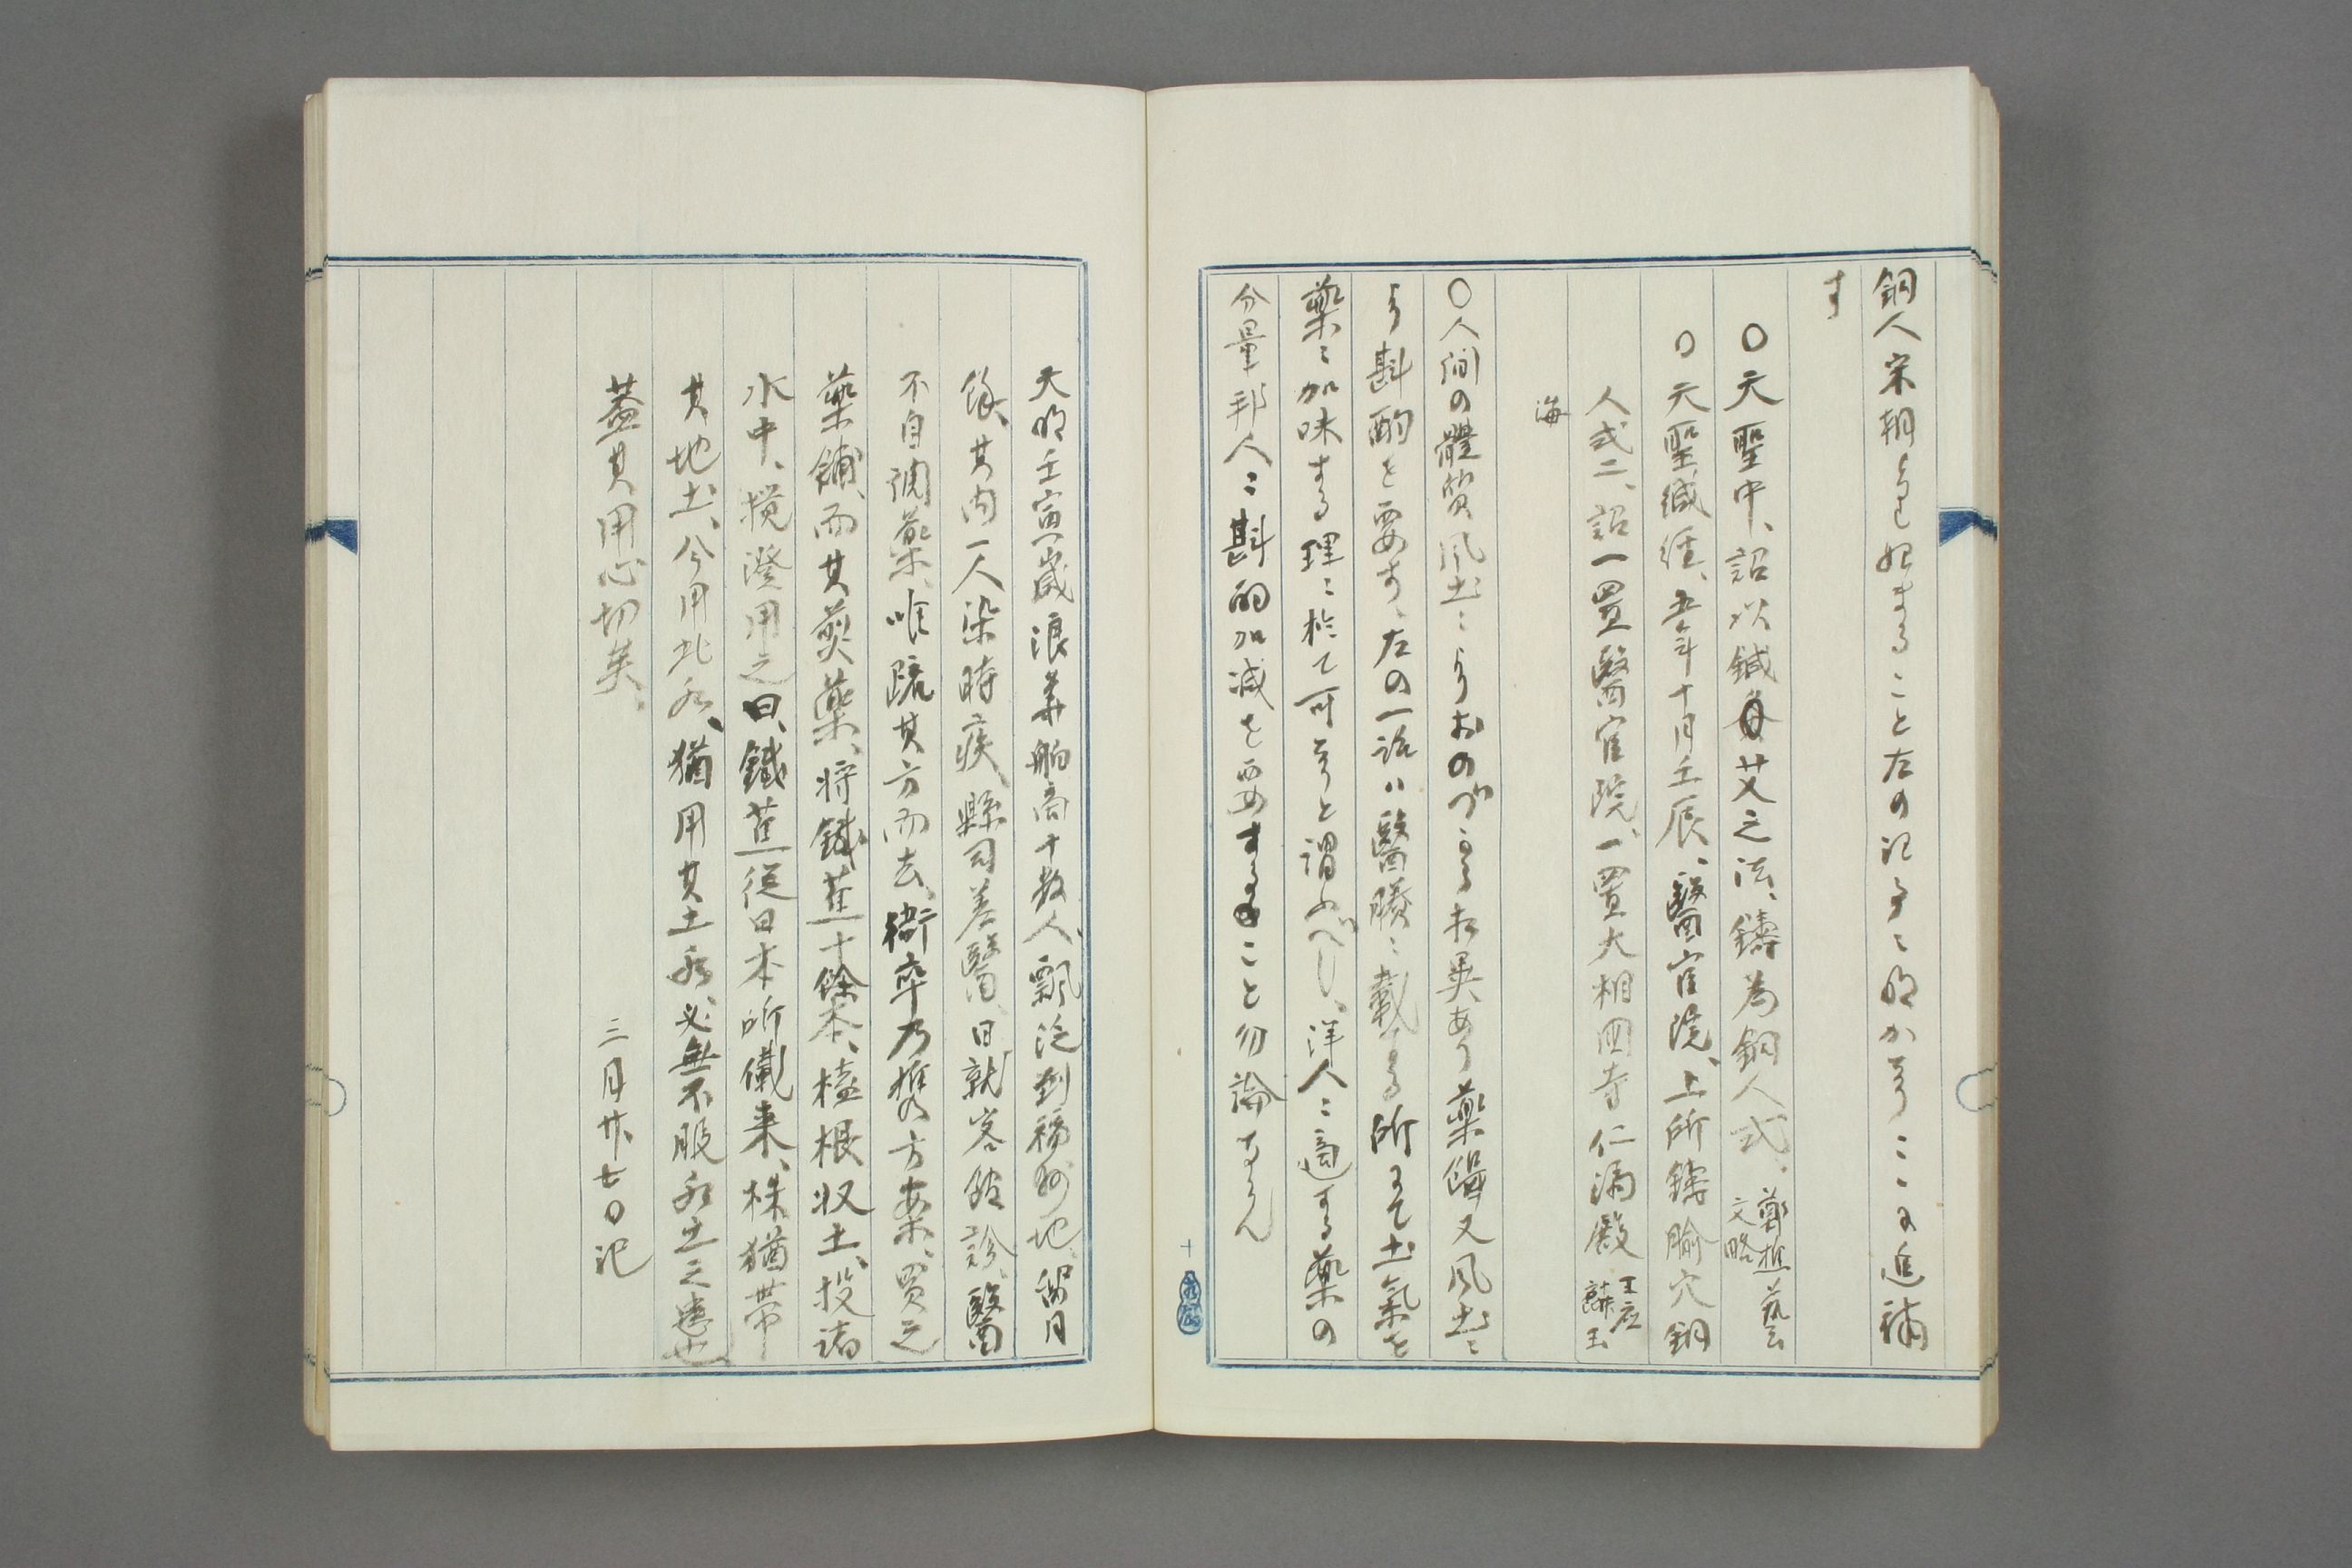 銅人宋朝より始まること左の記事に明かなりここに追補
す
〇天聖中、詔以鍼艾之法、鑄為銅人式、鄭樵藝文略
〇天聖鍼経、五年十月壬辰、醫官院、上所鑄腧穴銅
人式二、詔一置醫官院、一置大相国寺仁済殿 王応麟玉
海
〇人間の體質風土によりおのづから相異あり藥餌又風土に
より斟酌を要す、左の一話は醫賸に載する所にて土氣を
藥に加味する理に於て可なりと謂ふべし、洋人に適する藥の
分量邦人に斟酌加減を要することと勿論ならん
天明壬寅歳浪華舶商十数人、飄泛到福州地、留月
餘、其内一人染時疾、縣司差醫、日就客館診、醫
不自調藥、唯疏其方而去、衛卒乃携方案、買之
藥鋪、而其煎藥、将鐵蕉十餘本、榼根収土、投諸
水中、攪澄用之曰、鐵蕉従日本所儎来、株猶帯
其地土、今用此水、猶用其土水、必無不服水土之患也
蓋其用心切矣、
三月廿七日記